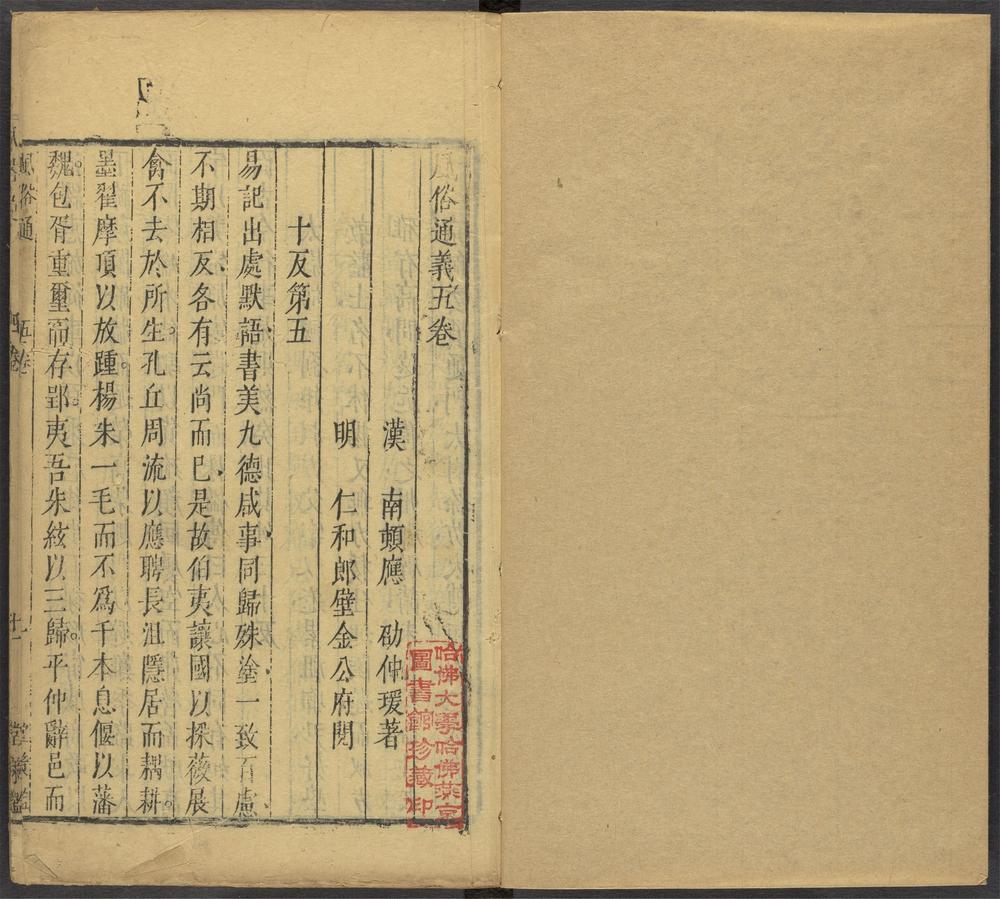 風俗通義五卷
漢 南頓應 劭仲瑗著
明 仁和郎壁金公府閱
十反第五
易記出處默語書美九德咸事同歸殊塗一致百慮
不期相反各有云尚而已是故伯夷讓國以採薇展
禽不去於所生孔丘周流以應聘長沮隱居而耦耕
墨翟摩頂以放踵楊朱一毛而不為千木息偃以藩
魏包胥重壐而存郢夷吾朱紘以三歸平仲辭邑而
風俗通
五卷
哈佛大學哈佛燕京
圖書館珍藏印